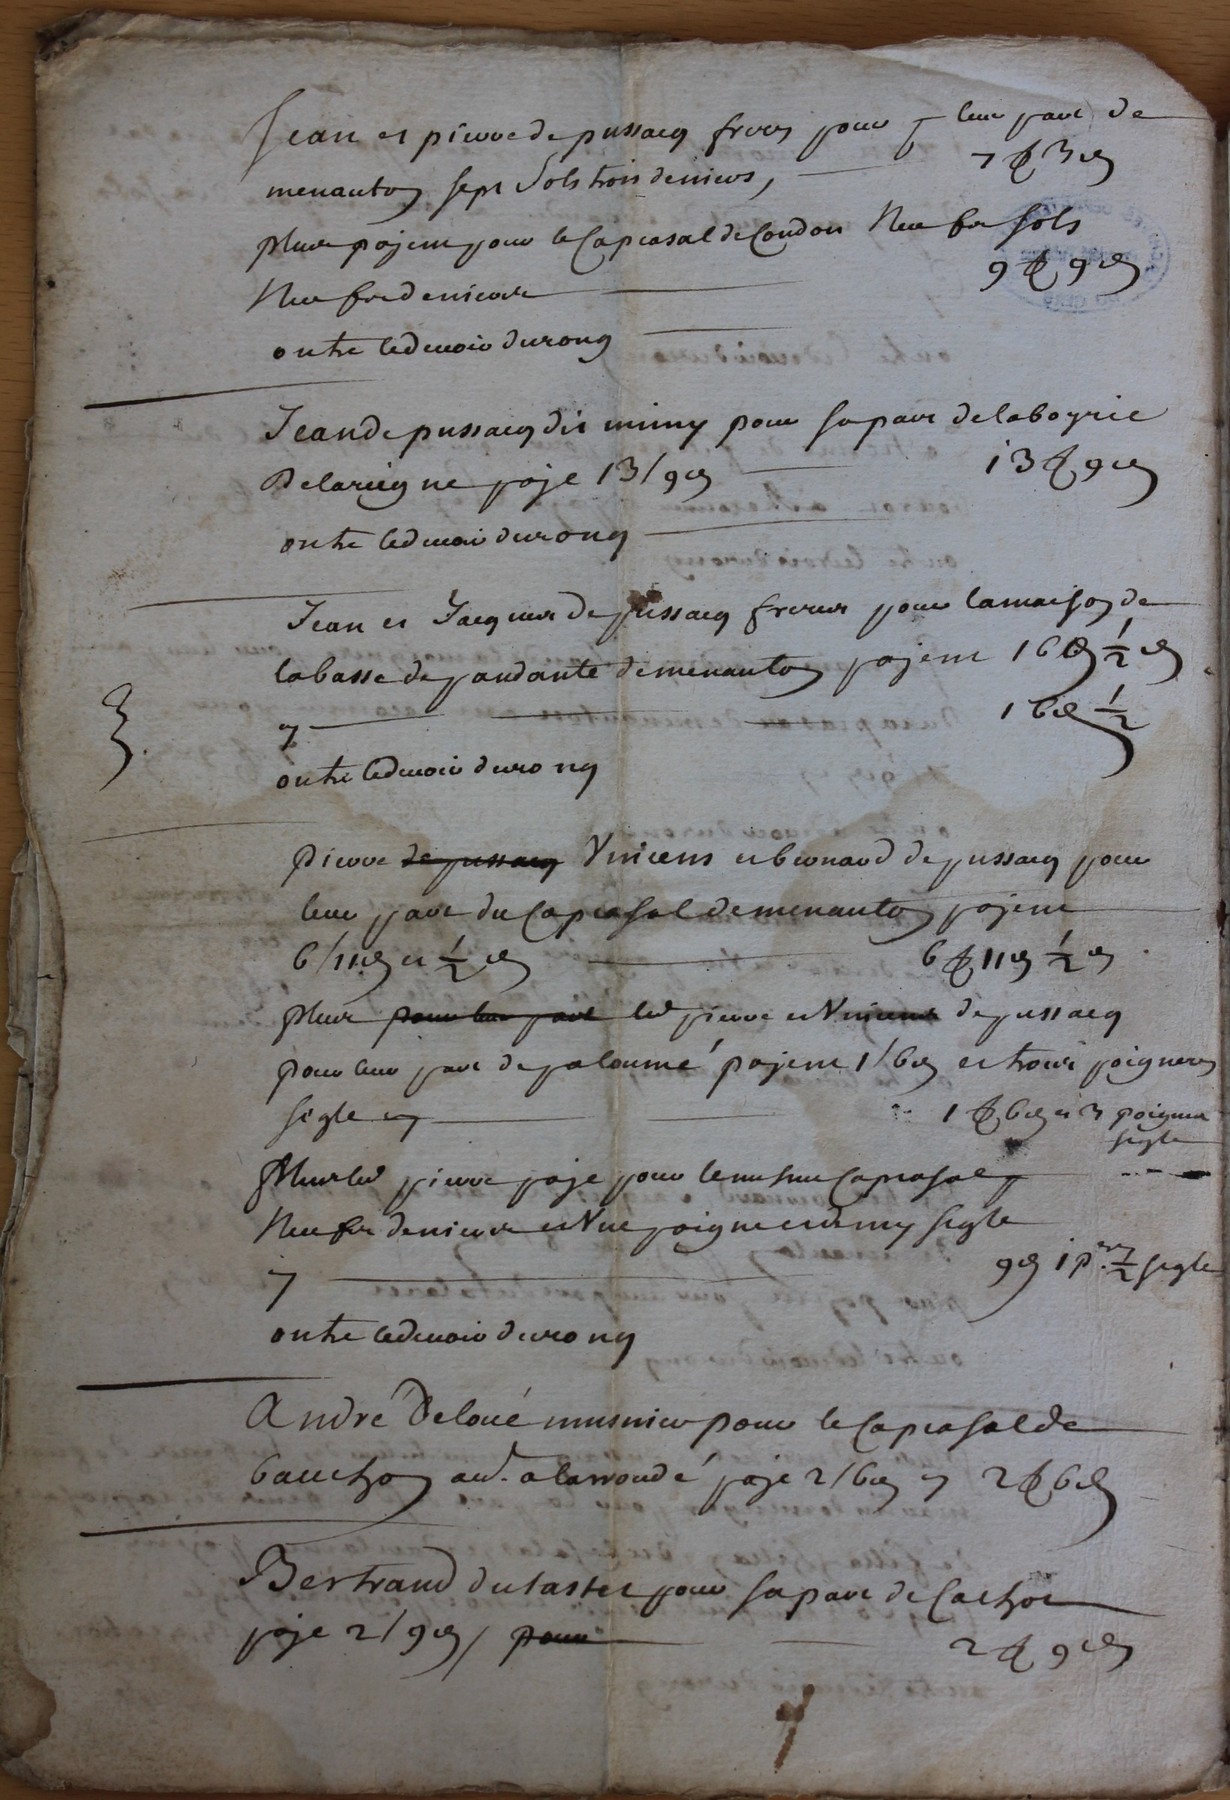 Jean et pierre de pussacq freres pour leur part de
menauton sept sols trois deniers, 7 s 3 d
plus payent pour le Capcasal de Condon Neuf sols
Neuf deniers 9 s 9 d
outre le devoir du rong
Jean de pussacq dit mimy pour sa part de laboyrie
Delarrigne paye 13 / 9 d 13 s 9 d
outre le devoir du rong
Jean et Jacques de pussacq freres pour la maison de
labasse de pandante de menauton payent 16 d 1/2 d
7 16 d 1/2
outre le devoir du rong
3.
pierre de pussacq Vincens et bernard de pussacq pour
leur part du Capcasal de menauton payent
6 / 11 d et 1/2 d 6 s 11 d 1/2 d
plus pour leur part led pierre et Vincens de pussacq
pour leur part de paloumé payent 1 / 6 d et trois poigneres
segle 7 1 s 6 d et 3 poignes
segle
Plus led pierre paye pour le mesme Capcasal
Neuf deniers et Vne poignere et demy segle
7 9 d 1 p. 1/2 segle
outre le devoir du rong
André Deloué musnier pour le Capcasal de
bauchon au. alarroudé paye 2 / 6 d 7 2 s 6 d
Bertrand dutastet pour sa part de Cachon
paye 2 / 9 d / pour 2 s 9 d